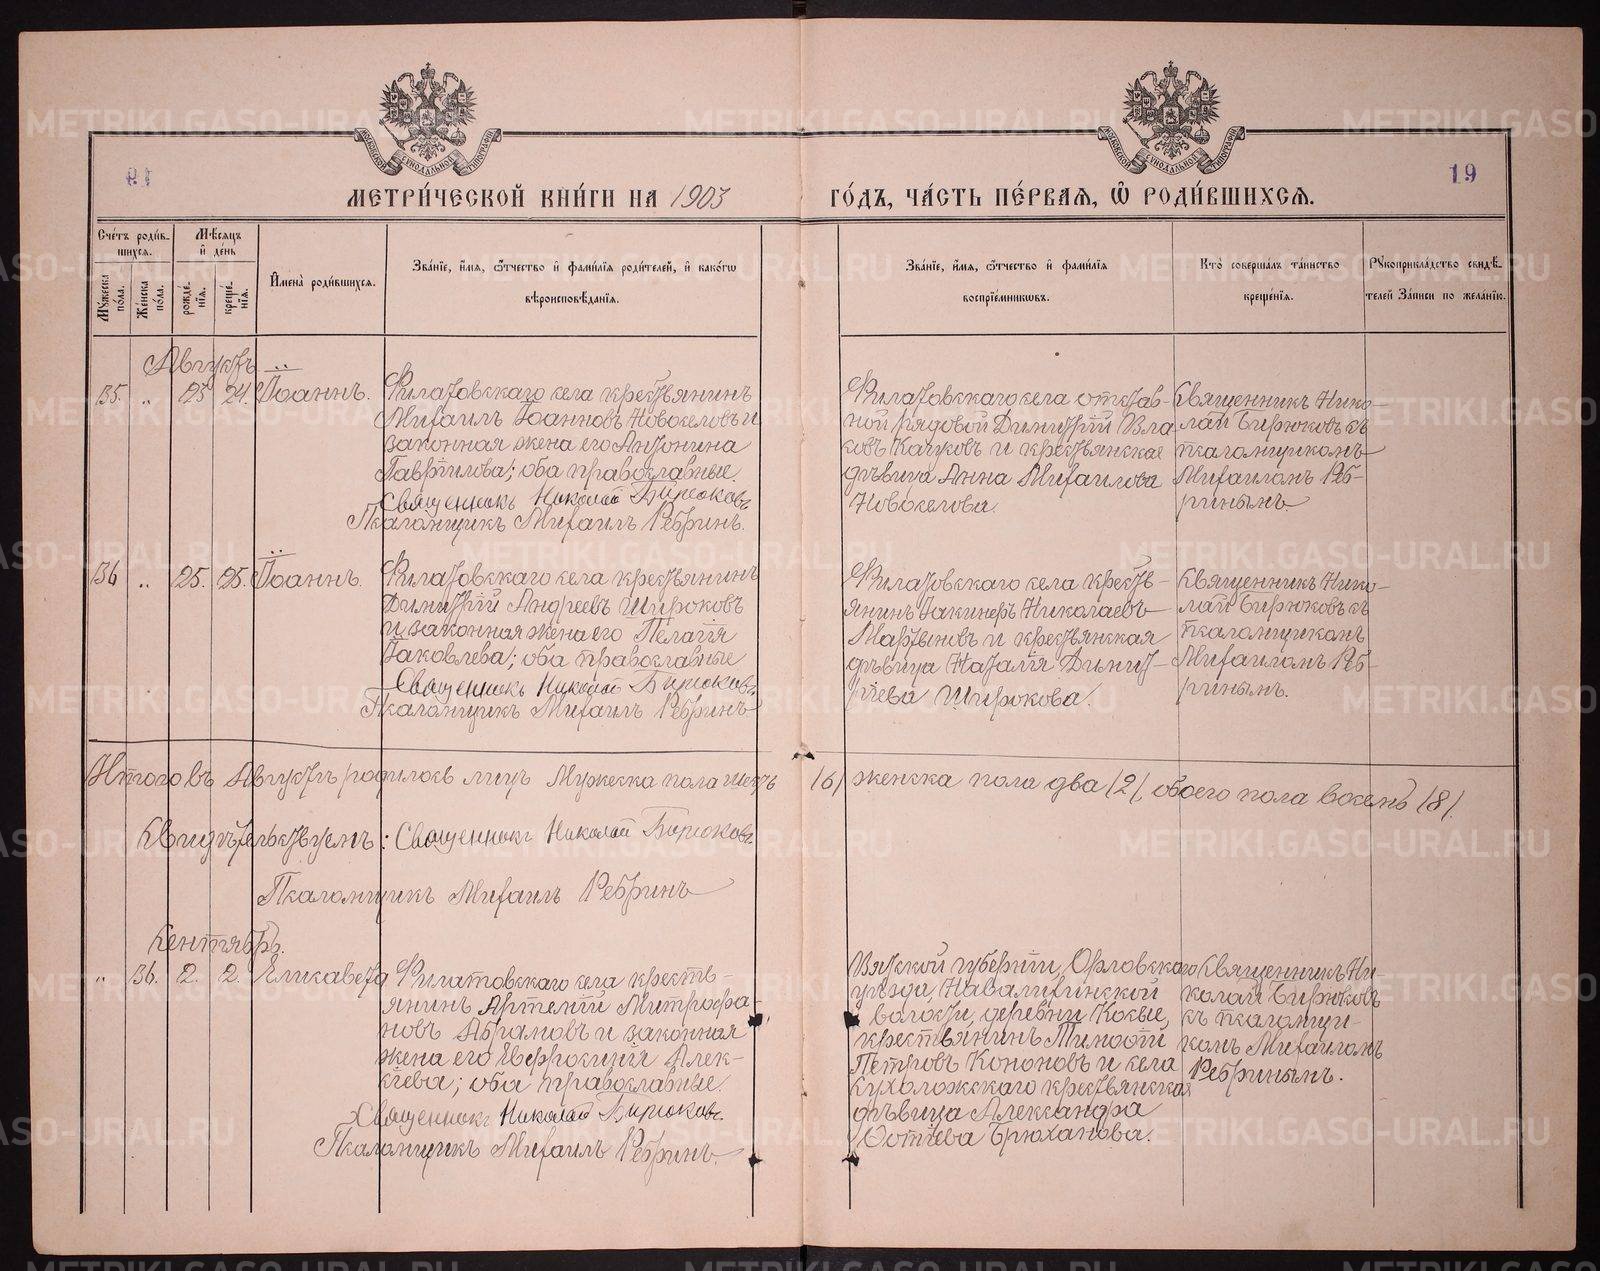 19
МЕТРИ́ЧЕСКОЙ КНИ́ГИ НА 1903 ГО́ДЪ, ЧА́СТЬ ПЕ́РВАЯ, Ѡ РОДИ́ВШИХСЯ.
Сче́тъ роди́вшихся.
Му́жеска по́ла.
Же́нска по́ла.
Мѣ́сяцъ и де́нь
рожде́нїя.
креще́нїя.
Имена̀ роди́вшихся.
Зва́нїе, и́мя, ѻ́тчество и фами́лїя роди́телей, и како́гѡ
вѣроисповѣ́данїя.
Зва́нїе, и́мя, ѻ́тчество и фами́лїя
воспрїе́мниковъ.
Кто̀ соверша́лъ та́инство
креще́нїя.
Рукоприкла́дство свидѣ́-
телей За́писи по жела́нїю.
Августъ
35. „ 23 24. Іоаннъ.
Филатовскаго села крестьянинъ
Михаилъ Іоанновъ Новоселовъ и
законная жена его Антонина
Гавріилова; оба православные.
Священникъ Николай Бирюковъ
Псаломщикъ Михаилъ Ребринъ.
Филатовскаго села отстав-
ной рядовой Димитрій Вла
совъ Качковъ и крестьянская
дѣвица Анна Михаилова
Новоселова.
Священникъ Нико-
лай Бирюковъ съ
псаломщикомъ
Михаиломъ Реб-
ринымъ
36 „ 25. 25. Іоаннъ.
Филатовскаго села крестьянинъ
Димитрій Андреевъ Широковъ
и законная жена его Пелагія
Іаковлева; оба православные
Священникъ Николай Бирюковъ
Псаломщикъ Михаилъ Ребринъ
Филатовскаго села кресть-
янинъ Іакинфъ Николаевъ
Мартыновъ и крестьянская
дѣвица Наталія Димит-
ріева Широкова.
Священникъ Нико-
лай Бирюковъ съ
псаломщикомъ
Михаиломъ Реб-
ринымъ.
Итого въ Августѣ родилось лицъ Мужеска пола шесть /6/ женска пола два /2/, обоего пола восемь /8/.
Свидѣтельствуемъ: Священникъ Николай Бирюковъ
Псаломщикъ Михаилъ Ребринъ
Сентябрь.
„ 36. 2. 2. Елисавета
Филатовскаго села кресть-
янинъ Артемій Митрофа-
новъ Абрамовъ и законная
жена его Евфросинія Алек-
сіева; оба православные.
Священникъ Николай Бирюковъ
Псаломщикъ Михаилъ Ребринъ.
Вятской губерніи, Орловскаго
уѣзда,
волости, деревни
крестьянинъ Тимофій
Петровъ Кононовъ и села
Сухоложскаго крестьянская
дѣвица Александра
Фотіева Брюханова.
Священникъ Ни
колай Бирюковъ
съ псаломщи-
комъ Михаиломъ
Ребринымъ.
METRIKI.GASO-URAL.RU